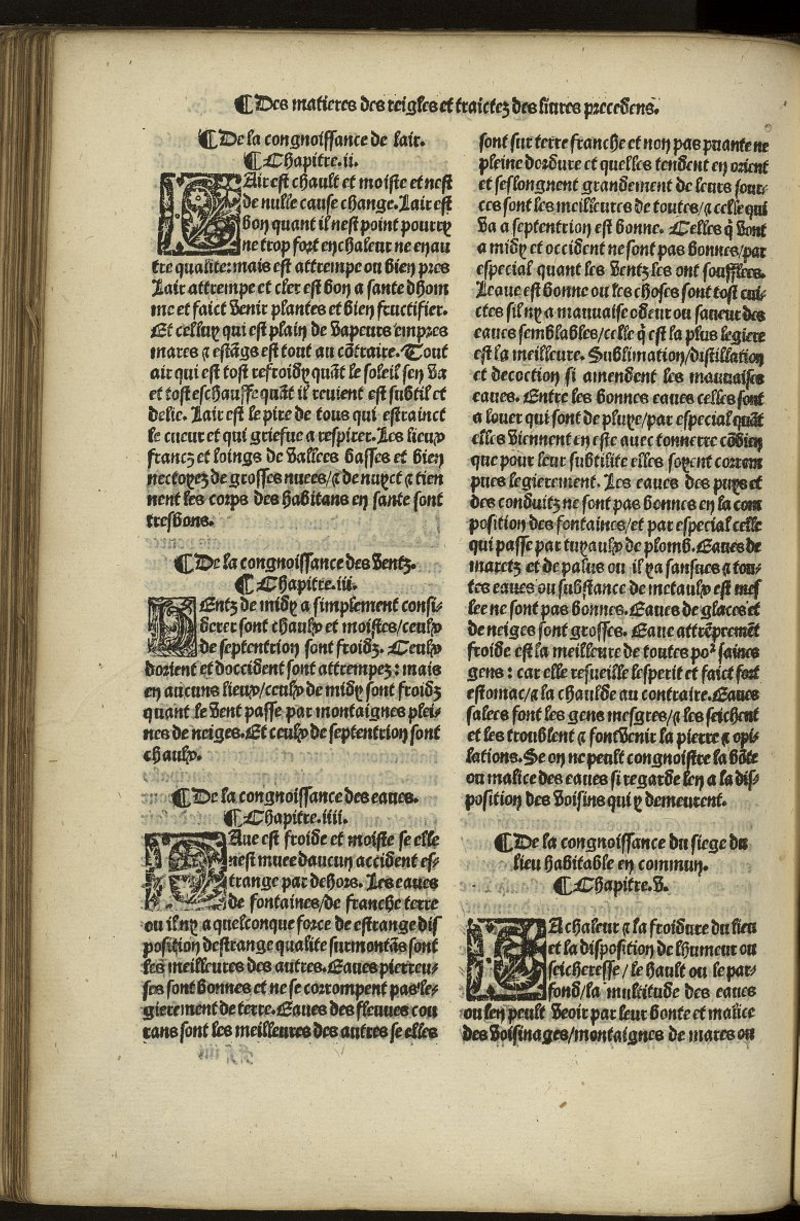 ¶ Des matieres des reigles et traictez des liures precedens.
¶ De la congnoissance de lair.
¶ Chapitre. ii.
LAir est chault et moiste et nest
de nulle cause change. Lair est
bon quant il nest point pourry
ne trop fort en chaleur ne en au
tre qualite: mais est attrempe ou bien pres
Lair attrempe et cler est bon a sante dhom
me et faict venir plantes et bien fructifier.
Et celluy qui est plain de vapeurs empres
mares ⁊ estãgs est tout au cõtraire. Tout
air qui est tost refroidy quãt le soleil sen va
et tost eschauffe quãt il reuient est subtil et
delie. Lair est le pire de tous qui estrainct
le cueur et qui griefue a respirer. Les lieux
francz et loings de vallees basses et bien
nectoyez de grosses nuees/⁊ de nuyct ⁊ tien
nent les corps des habitans en sante sont
tresbons.
¶ De la congnoissance des ventz.
¶ Chapitre. iii.
VEntz de midy a simplement consi-
derer sont chaulx et moistes/ceulx
de septentrion sont froidz. Ceulx
dorient et doccident sont attrempez: mais
en aucuns lieux/ceulx de midy sont froidz
quant le vent passe par montaignes plei-
nes de neiges. Et ceulx de septentrion sont
chaulx.
¶ De la congnoissance des eaues.
¶ Chapitre. iiii.
EAue est froide et moiste se elle
nest muee daucun accident es-
trange par dehors. Les eaues
de fontaines/de franche terre
ou il ny a quelconque force de estrange dis
position destrange qualite surmontãs sont
les meilleures des autres. Eaues pierreu-
ses sont bonnes et ne se corrompent pas le-
gierement de terre. Eaues des fleuues cou
rans sont les meilleures des autres se elles
sont sur terre franche et non pas puante ne
pleine dordure et quelles tendent en orient
et seslongnent grandement de leurs sour-
ces sont les meilleures de toutes/⁊ celle qui
va a septentrion est bonne. Celles q̃ vont
a midy et occident ne sont pas bonnes/par
especial quant les ventz les ont soufflees.
Leaue est bonne ou les choses sont tost cui-
ctes sil ny a mauuaise odeur ou saueur des
eaues semblables/celle q̃ est la plus legiere
est la meilleure. Sublimation/distillation
et decoction si amendent les mauuaises
eaues. Entre les bonnes eaues celles sont
a louer qui sont de pluye/par especial quãt
elles viennent en este auec tonnerre cõbien
que pour leur subtilite elles soyent corrom
pues legierement. Les eaues des puys et
des conduitz ne sont pas bonnes en la com
position des fontaines/et par especial celle
qui passe par tuyaulx de plomb. Eaues de
maretz et de palus ou il y a sansues ⁊ tou-
tes eaues ou substance de metaulx est mes
lee ne sont pas bonnes. Eaues de glaces et
de neiges sont grosses. Eaue attrẽpremẽt
froide est la meilleure de toutes poꝰ saines
gens: car elle resueille lesperit et faict fort
estomac/⁊ la chaulde au contraire. Eaues
salees font les gens mesgres/⁊ les seichent
et les troublent ⁊ font venir la pierre ⁊ opi-
lations. Se on ne peult congnoistre la bõte
ou malice des eaues si regarde len a la dis-
position des voisins qui y demeurent.
¶ De la congnoissance du siege du
lieu habitable en commun.
¶ Chapitre. v.
LA chaleur ⁊ la froidure du lieu
et la disposition de lhumeur ou
seicheresse/le hault ou le par-
fond/la multitude des eaues
ou len peult veoir par leur bonte et malice
des voisinages/montaignes de mares ou